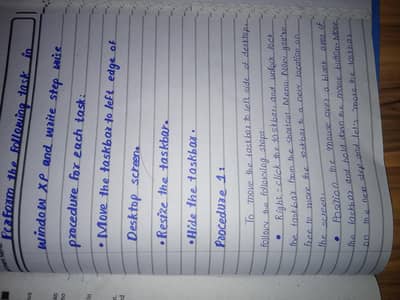 Perform the following task in
window XP and write step wise
procedure for each task:
• Move the taskbar to left edge of
Desktop screen.
• Resize the taskbar.
• Hide the taskbar.
Procedure 1:
To move the taskbar to left side of desktop,
follow the following steps
• Right-click the taskbar and unlock
the taskbar from the shortcut menu. Now, you're
free to move the taskbar to a new location on
the screen.
• Position the mouse over a blank area of
the taskbar and hold down the mouse button. Move
on the new step and let's move the taskbar.